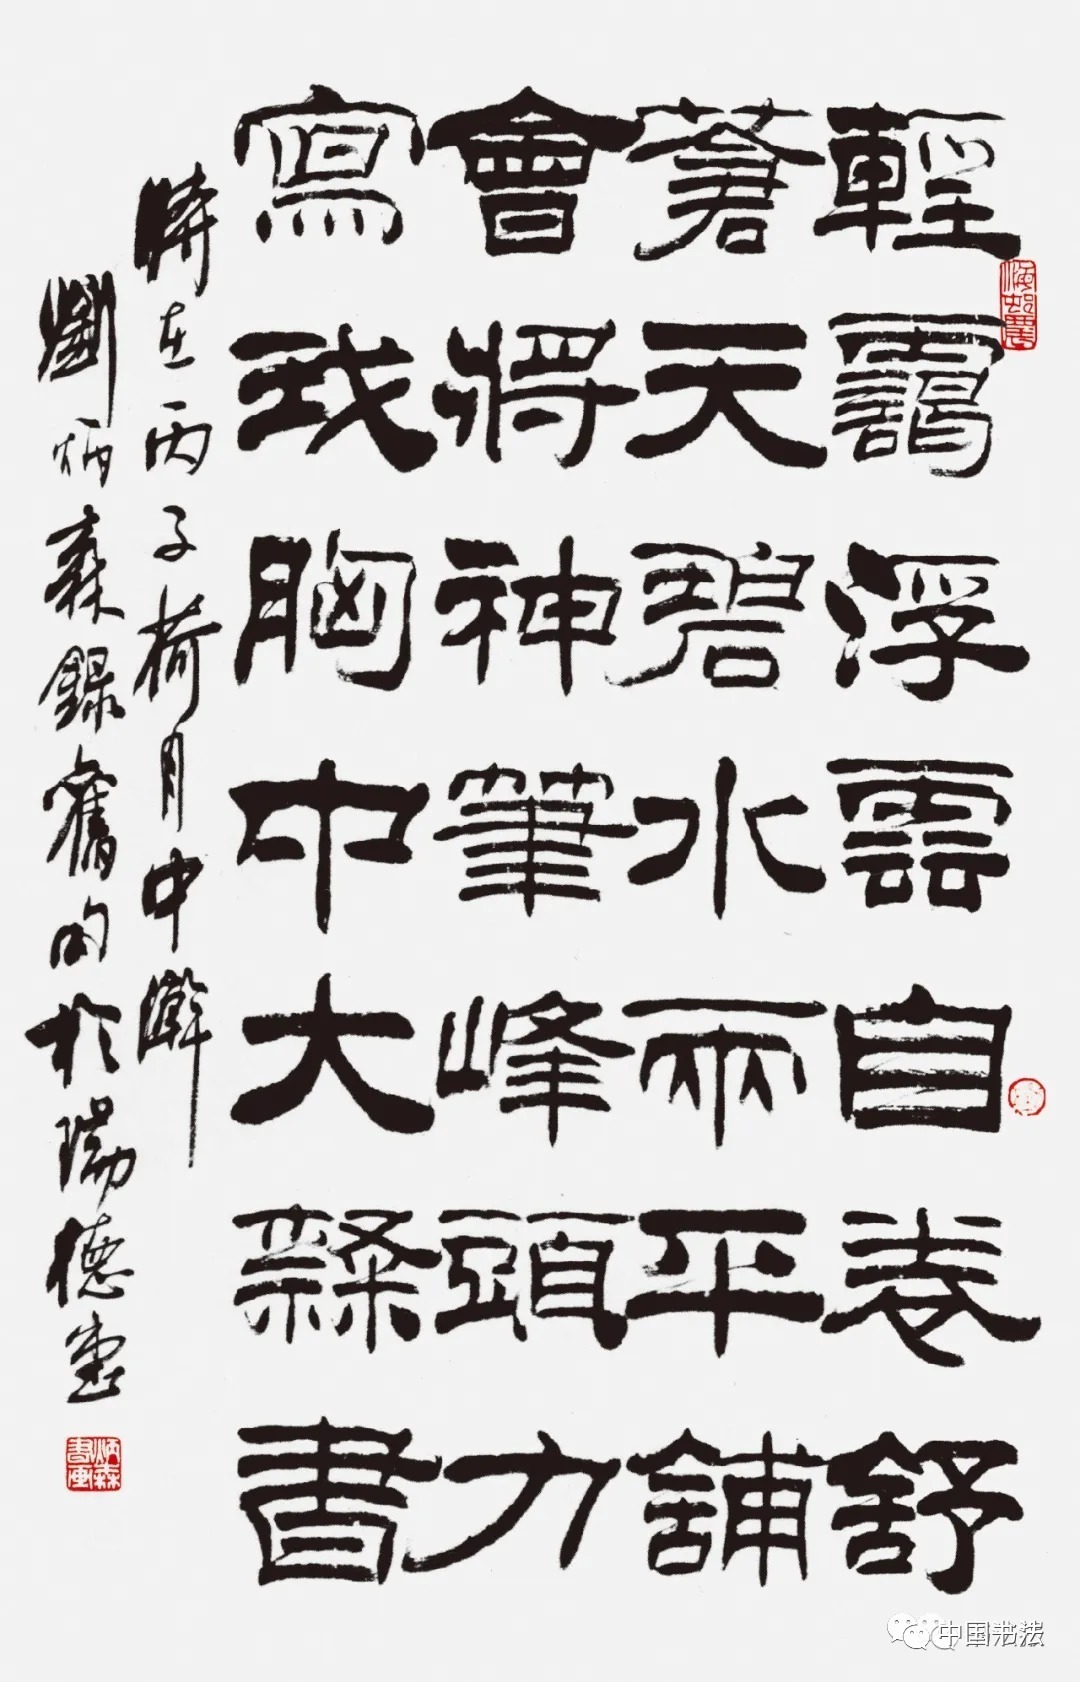 輕靄浮雲自卷舒
蒼天碧水兩平鋪
會將神筆峰頭力
寫我胸中大隸書
時在丙子荷月中澣
劉炳森錄舊句於瑞德堂
炳森書畫
中国书法